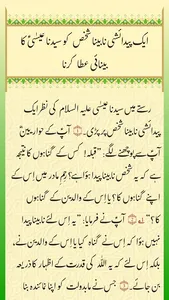 ایک پیدائشی نابینا شخص کو سیدنا عیسیٰؑ کا
بینائی عطا کرنا
رستے میں سیدنا عیسیٰ علیہ السلام کی نظر ایک
پیدائشی نابینا شخص پر پڑی۔ آپؑ کے حواریینؓ
آپؑ سے پوچھنے لگے: "قبلہ! کس کے گناہوں کا نتیجہ
ہے کہ یہ شخص نابینا پیدا ہوا ہے؟ رحمِ مادر میں اِس کے
گناہوں کا؟ یا اِس کے والدین کے
گناہوں کا؟" آپؑ نے فرمایا: "یہ اِس لئے نابینا پیدا
نہیں ہوا کہ اِس نے گناہ کیا یا اِس کے والدین نے،
بلکہ اِس لئے کہ یہ اللہ کی قدرت کے اظہار کا ذریعہ
بن جائے۔ جس نے مابدولت کو اپنا نمائندہ بنا